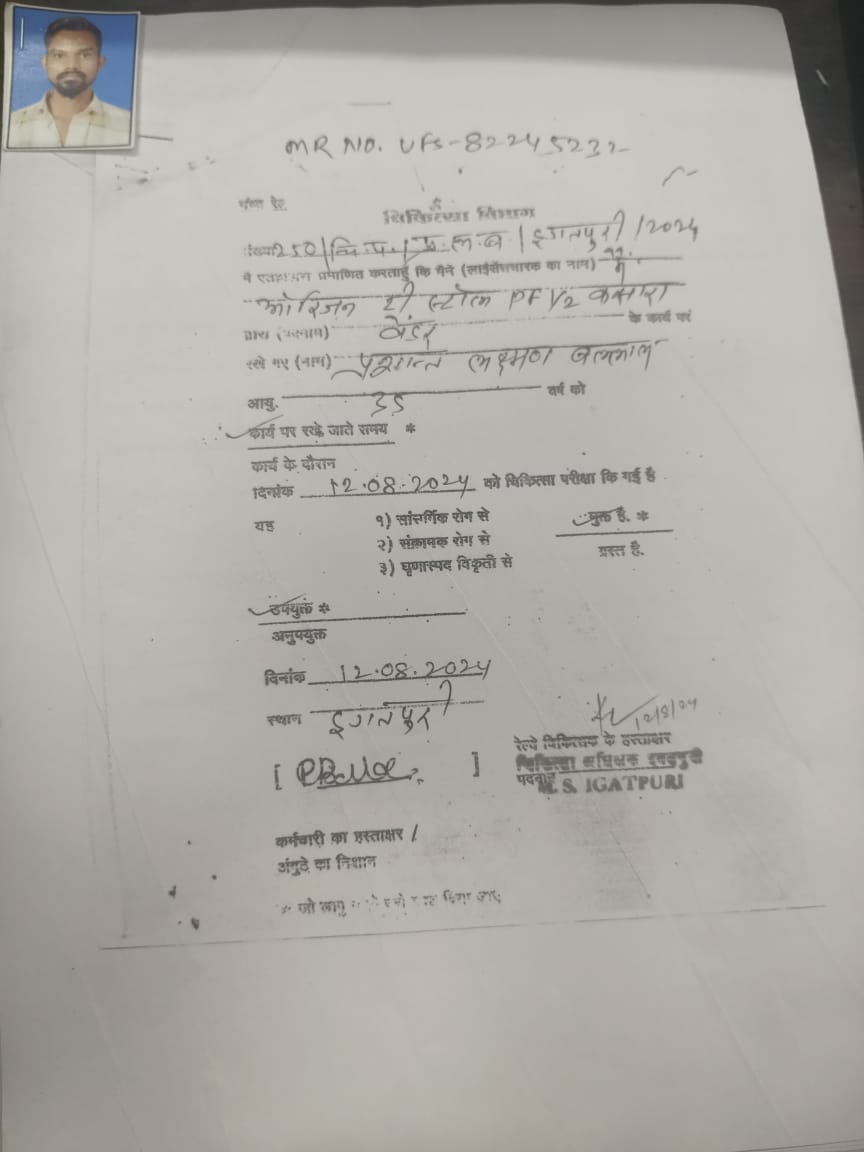 MR NO. UFS-82245232
चिकित्सा विभाग
250/चि.प./प्र.ल.ब/इगतपुरी/2024
मे एतद्द्वारा प्रमाणित करताहूँ कि मैने (लाईसेंसधारक का नाम) मे.
टी स्टॉल PF 1/2 कसारा
द्वारा (पदनाम) वेंडर के कार्य पर
रखे गए (नाम) प्रशान्त लक्ष्मण
आयु. 35 वर्ष को
कार्य पर रखे जाते समय *
कार्य के दौरान
दिनांक 12.08.2024 को चिकित्सा परीक्षा कि गई है
यह १) सांसर्गिक रोग से मुक्त है. *
२) संक्रामक रोग से
३) घृणास्पद विकृती से ग्रस्त है.
उपयुक्त *
अनुपयुक्त
दिनांक 12.08.2024
स्थान इगतपुरी
12/8/24
रेल्वे चिकित्सक के हस्ताक्षर
चिकित्सा अधिक्षक इगतपुरी
पदनाम M. S. IGATPURI
[ ]
कर्मचारी का हस्ताक्षर /
अंगुठे का निशान
* जो लागु